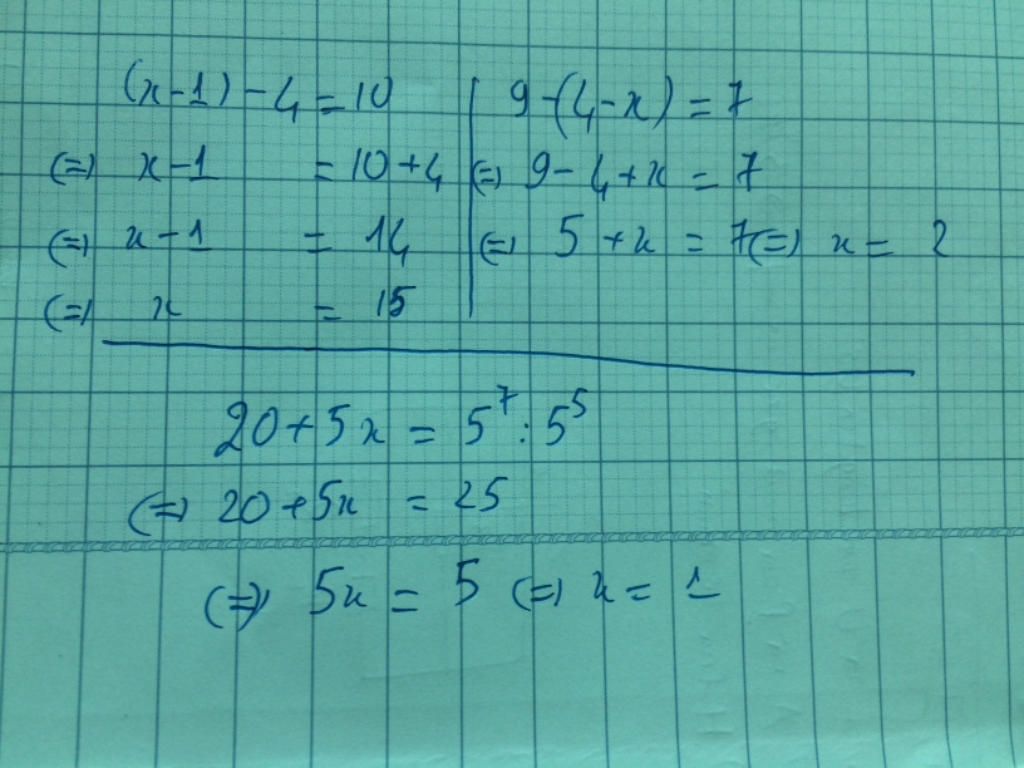 (x-1) - 4 = 10
(=) x-1 = 10+4
(=) x-1 = 14
(=) x = 15
9-(4-x) = 7
(=) 9-4+x = 7
(=) 5+x = 7 (=) x = 2
20+5x = 5⁷:5⁵
(=) 20+5x = 25
(=) 5x = 5 (=) x = 1